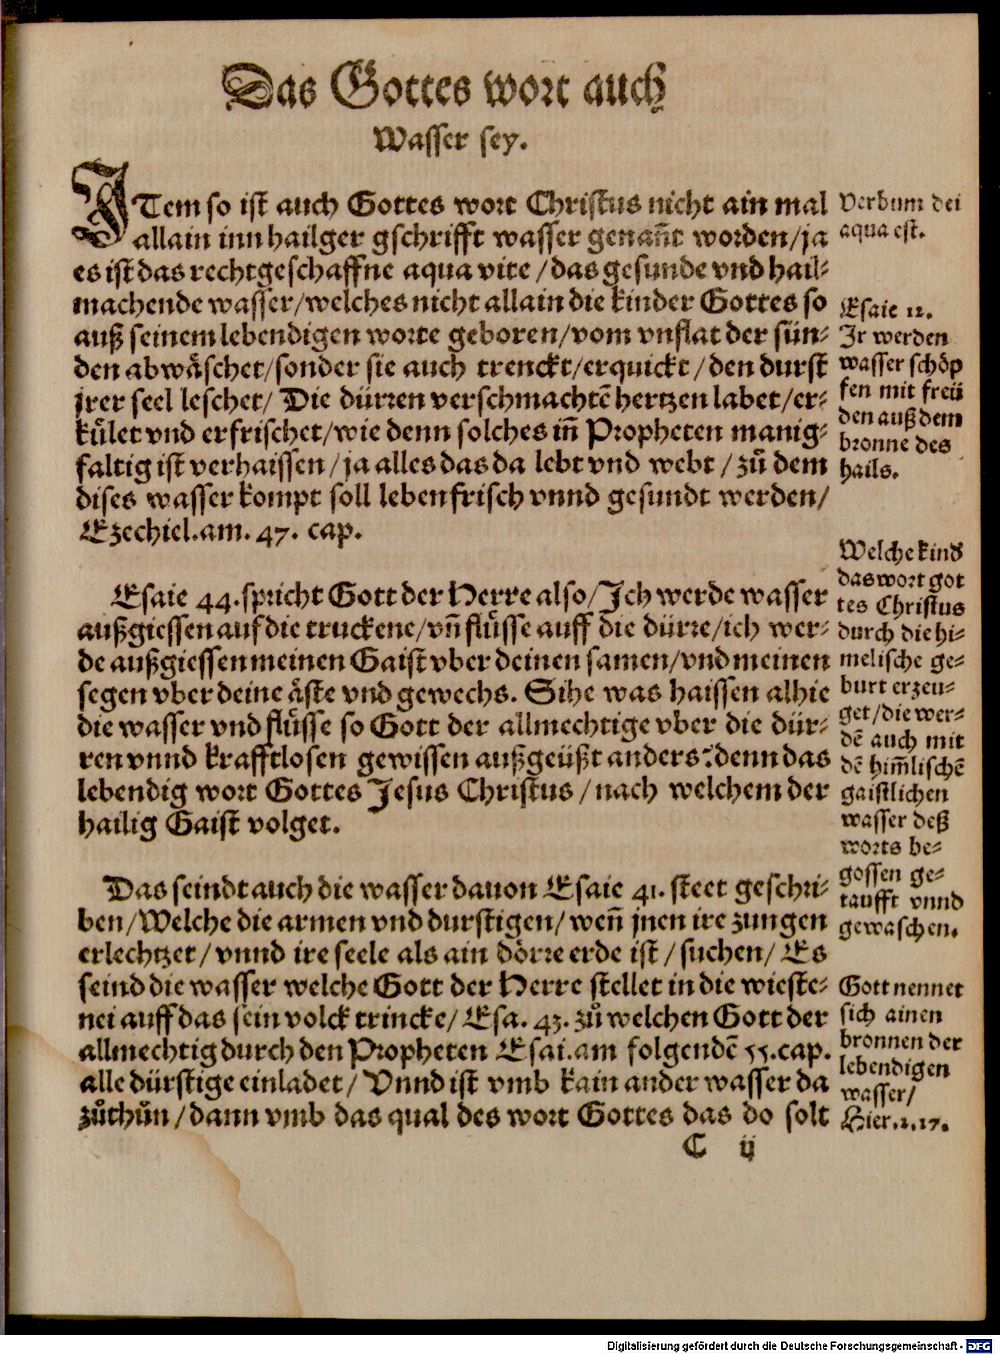 Das Gottes wort auch
Wasser sey.
ITem so ist auch Gottes wort Christus nicht ain mal
allain inn hailger gschrifft wasser genañt worden/ja
es ist das rechtgeschaffne aqua vite/das gesunde vnd hail-
machende wasser/welches nicht allain die kinder Gottes so
auß seinem lebendigen worte geboren/vom vnflat der sün-
den abwäschet/sonder sie auch trenckt/erquickt/den durst
jrer seel leschet/ Die dürren verschmachtē hertzen labet/er-
kůlet vnd erfrischet/wie denn solches in̄ Propheten manig-
faltig ist verhaissen/ja alles das da lebt vnd webt/zů dem
dises wasser kompt soll leben frisch vnnd gesundt werden/
Ezechiel.am. 47. cap.
Esaie 44.spricht Gott der Herre also/Ich werde wasser
außgiessen auf die truckene/vn̄ flüsse auff die dürre/ich wer-
de außgiessen meinen Gaist vber deinen samen/vnd meinen
segen vber deine äste vnd gewechs. Sihe was haissen alhie
die wasser vnd flüsse so Gott der allmechtige vber die dür-
ren vnnd krafftlosen gewissen außgeüßt anders? denn das
lebendig wort Gottes Jesus Christus/nach welchem der
hailig Gaist volget.
Das seindt auch die wasser dauon Esaie 41. steet geschri-
ben/Welche die armen vnd durstigen/wen̄ jnen ire zungen
erlechtzet/vnnd ire seele als ain dörre erde ist/suchen/Es
seind die wasser welche Gott der Herre stellet in die wieste-
nei auff das sein volck trincke/Esa. 43. zů welchen Gott der
allmechtig durch den Propheten Esai.am folgendē 55.cap.
alle dürstige einladet/ Vnnd ist vmb kain ander wasser da
zůthůn/dann vmb das qual des wort Gottes das do solt
C ij
Verbum dei
aqua est.
Esaie 12.
Ir werden
wasser schöp
fen mit freü
den auß dem
bronne des
hails.
Welche kind
das wort got
tes Christus
durch die hi-
melische ge-
burt erzeu-
get/die wer-
dē auch mit
dē him̄lischē
gaistlichen
wasser deß
worts be-
gossen ge-
taufft vnnd
gewaschen.
Gott nennet
sich ainen
bronnen der
lebendigen
wasser/
Hier.2.17.
Digitalisierung gefördert durch die Deutsche Forschungsgemeinschaft - DFG